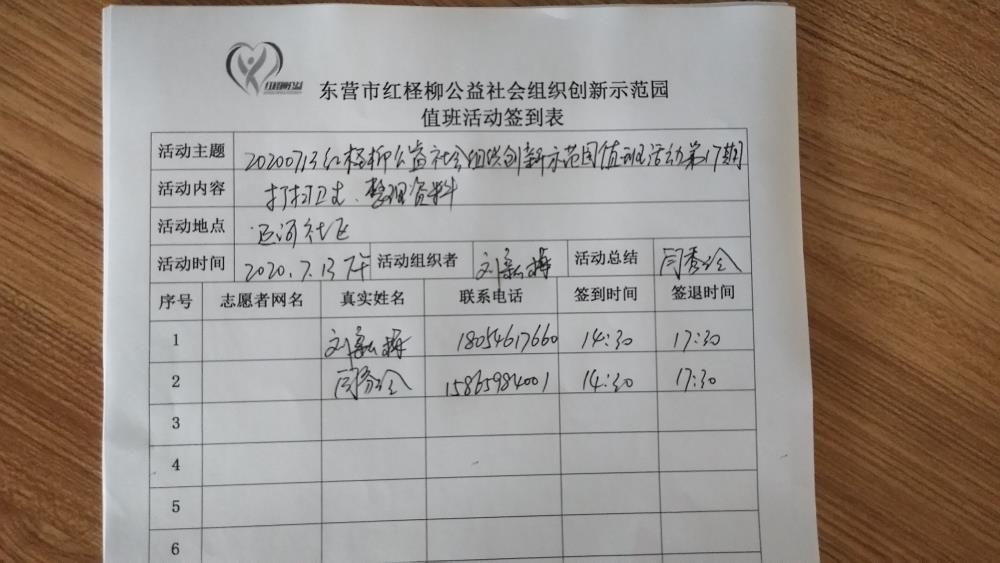 红柽柳公益
东营市红柽柳公益社会组织创新示范园
值班活动签到表
活动主题 20200713红柽柳公益社会组织创新示范园值班活动第17期
活动内容 打扫卫生、整理资料
活动地点 运河社区
活动时间 2020.7.13下午 活动组织者 刘 梅 活动总结 闫秀玲
序号 志愿者网名 真实姓名 联系电话 签到时间 签退时间
1 刘 梅 18054617660 14:30 17:30
2 闫秀玲 15865984001 14:30 17:30
3
4
5
6